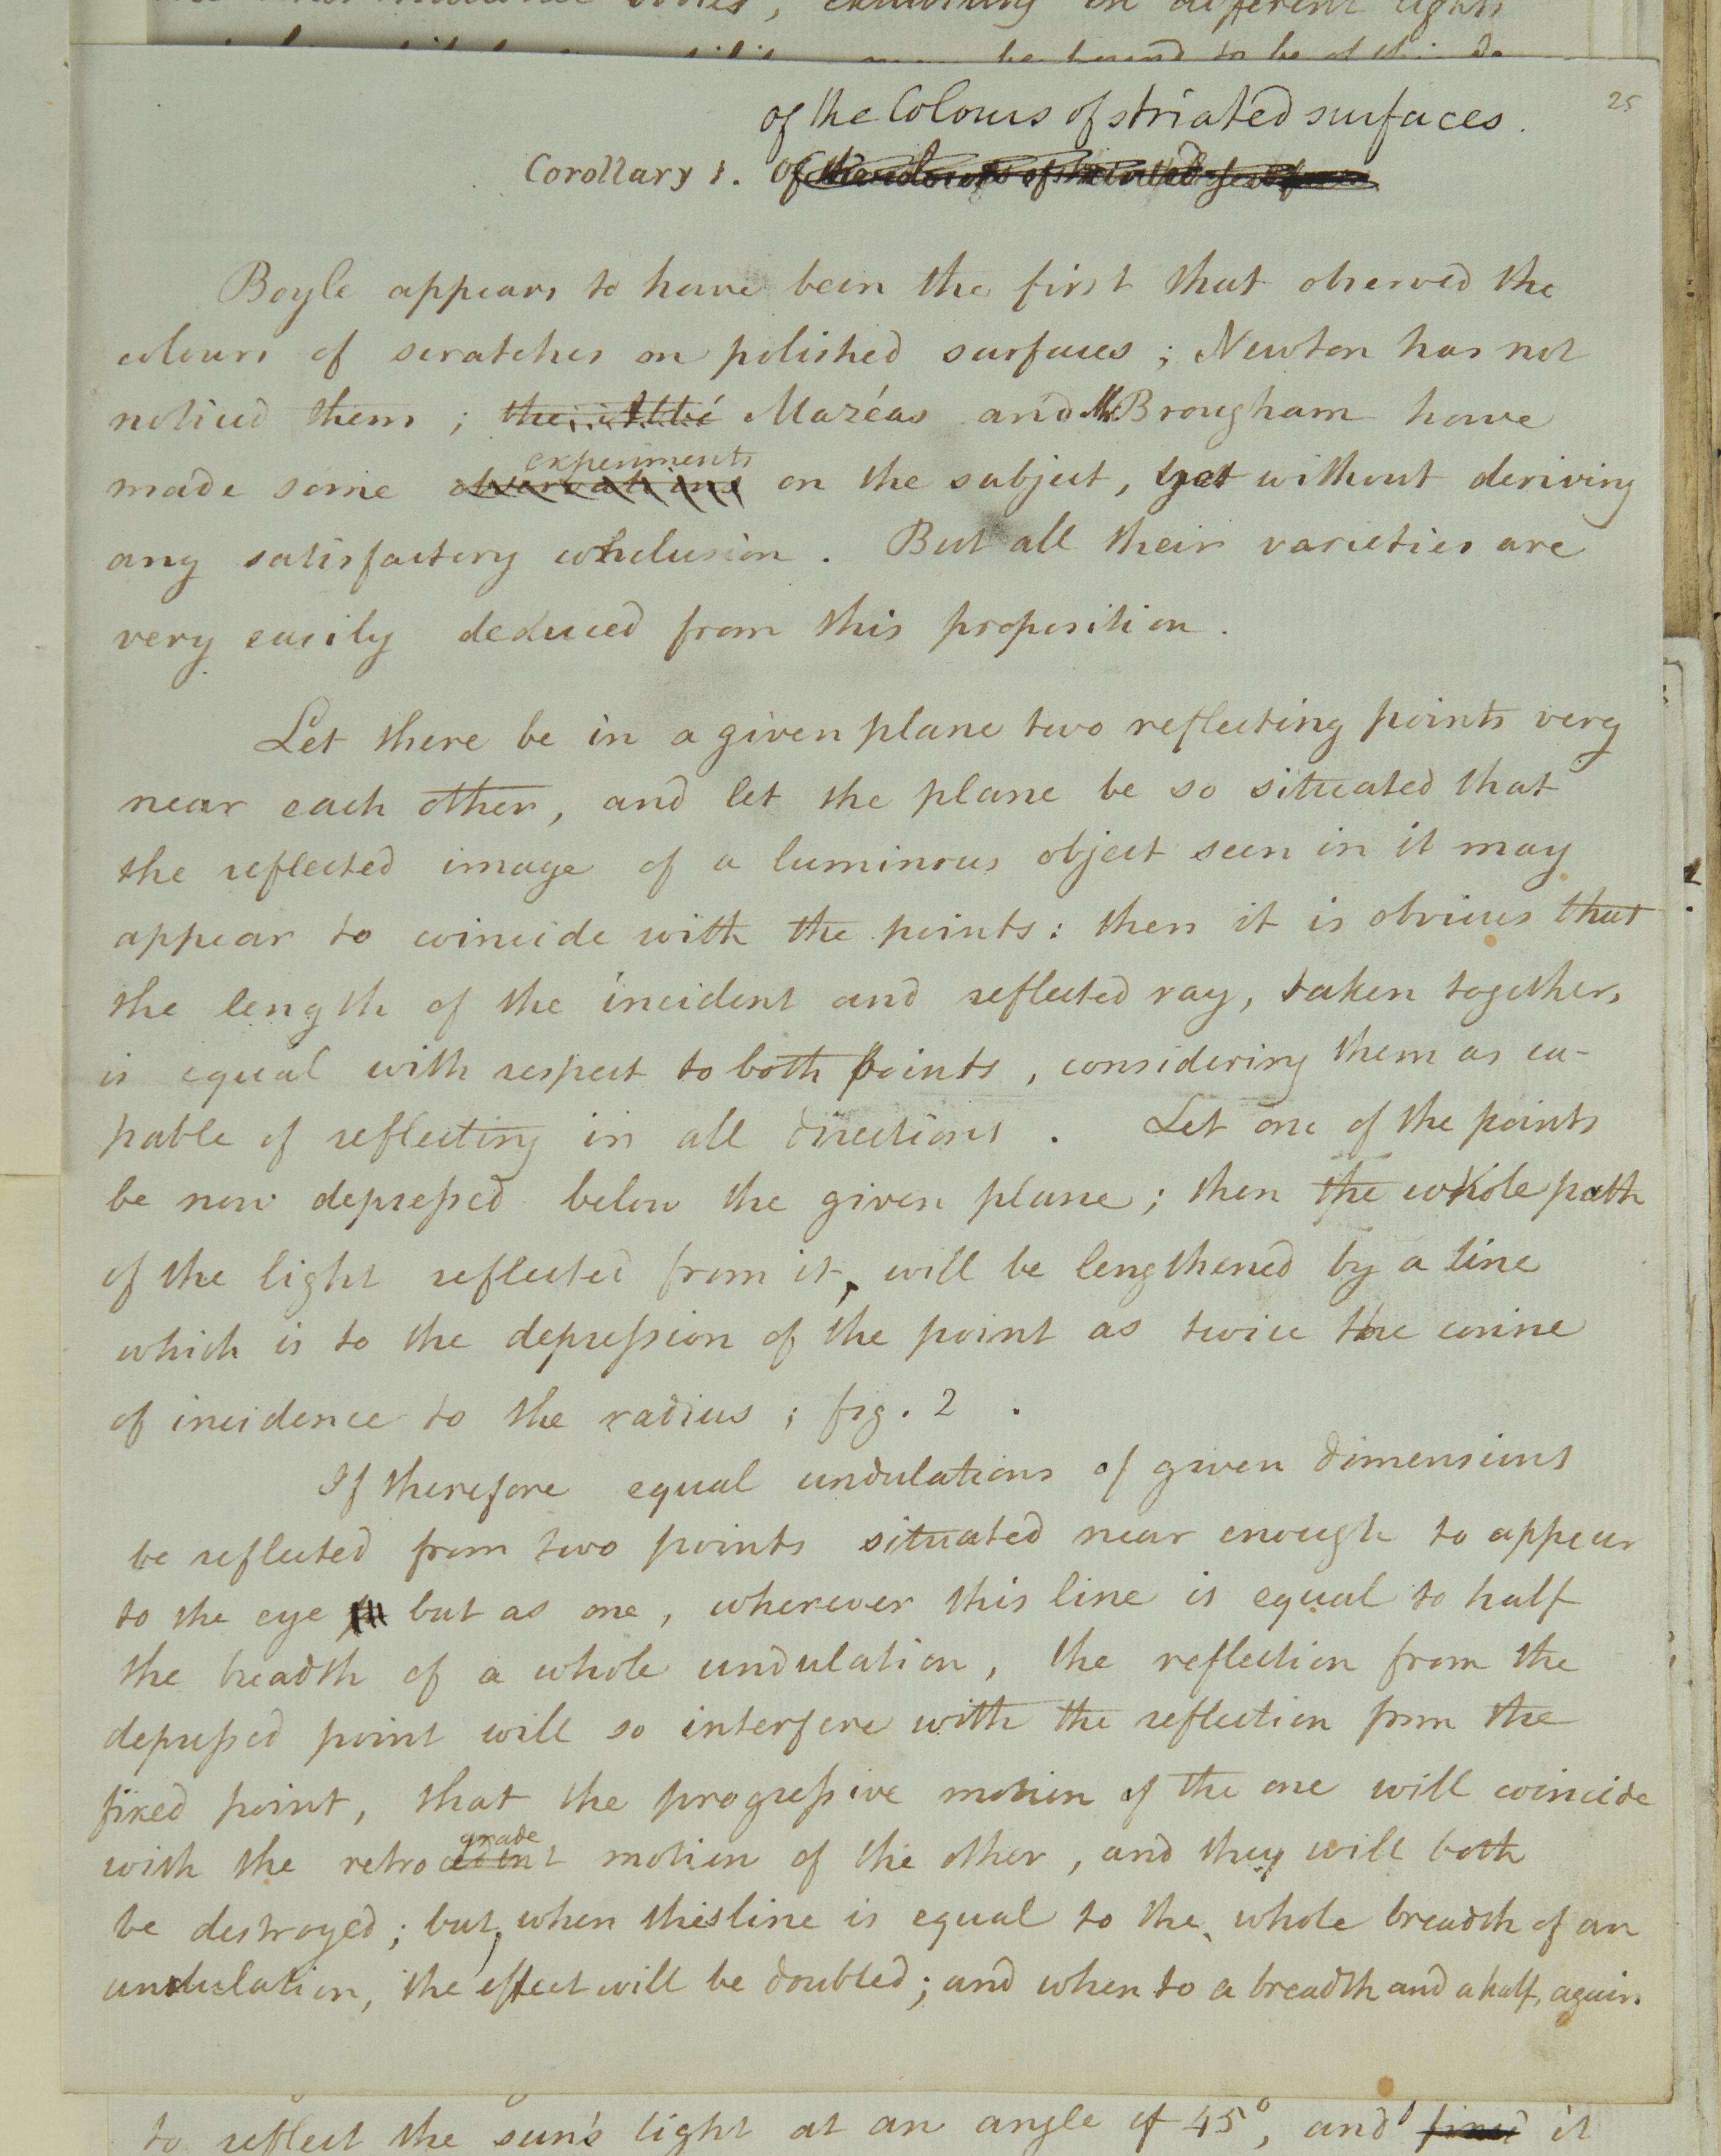 in different lights
of the Colours of striated surfaces.
25
Corollary 1. Of the colours of striated surfaces
Boyle appears to have been the first that observed the
colours of scratches on polished surfaces; Newton has not
noticed them; the Abbé Mazéas and Mr Brougham have
experiments
made some observations on the subject, yet without deriving
any satisfactory conclusion. But all their varieties are
very easily deduced from this proposition.
Let there be in a given plane two reflecting points very
near each other, and let the plane be so situated that
the reflected image of a luminous object seen in it may
appear to coincide with the points: then it is obvious that
the length of the incident and reflected ray, taken together,
is equal with respect to both points, considering them as ca-
pable of reflecting in all directions. Let one of the points
be now depressed below the given plane; then the whole path
of the light reflected from it, will be lengthened by a line
which is to the depression of the point as twice the cosine
of incidence to the radius; fig. 2.
If therefore equal undulations of given dimensions
be reflected from two points situated near enough to appear
to the eye but as one, wherever this line is equal to half
the breadth of a whole undulation, the reflection from the
depressed point will so interfere with the reflection from the
fixed point, that the progressive motion of the one will coincide
grade
with the retrocedent motion of the other, and they will both
be destroyed; but, when this line is equal to the whole breadth of an
undulation, the effect will be doubled; and when to a breadth and a half, again
to reflect the sun's light at an angle of 45°, and find it